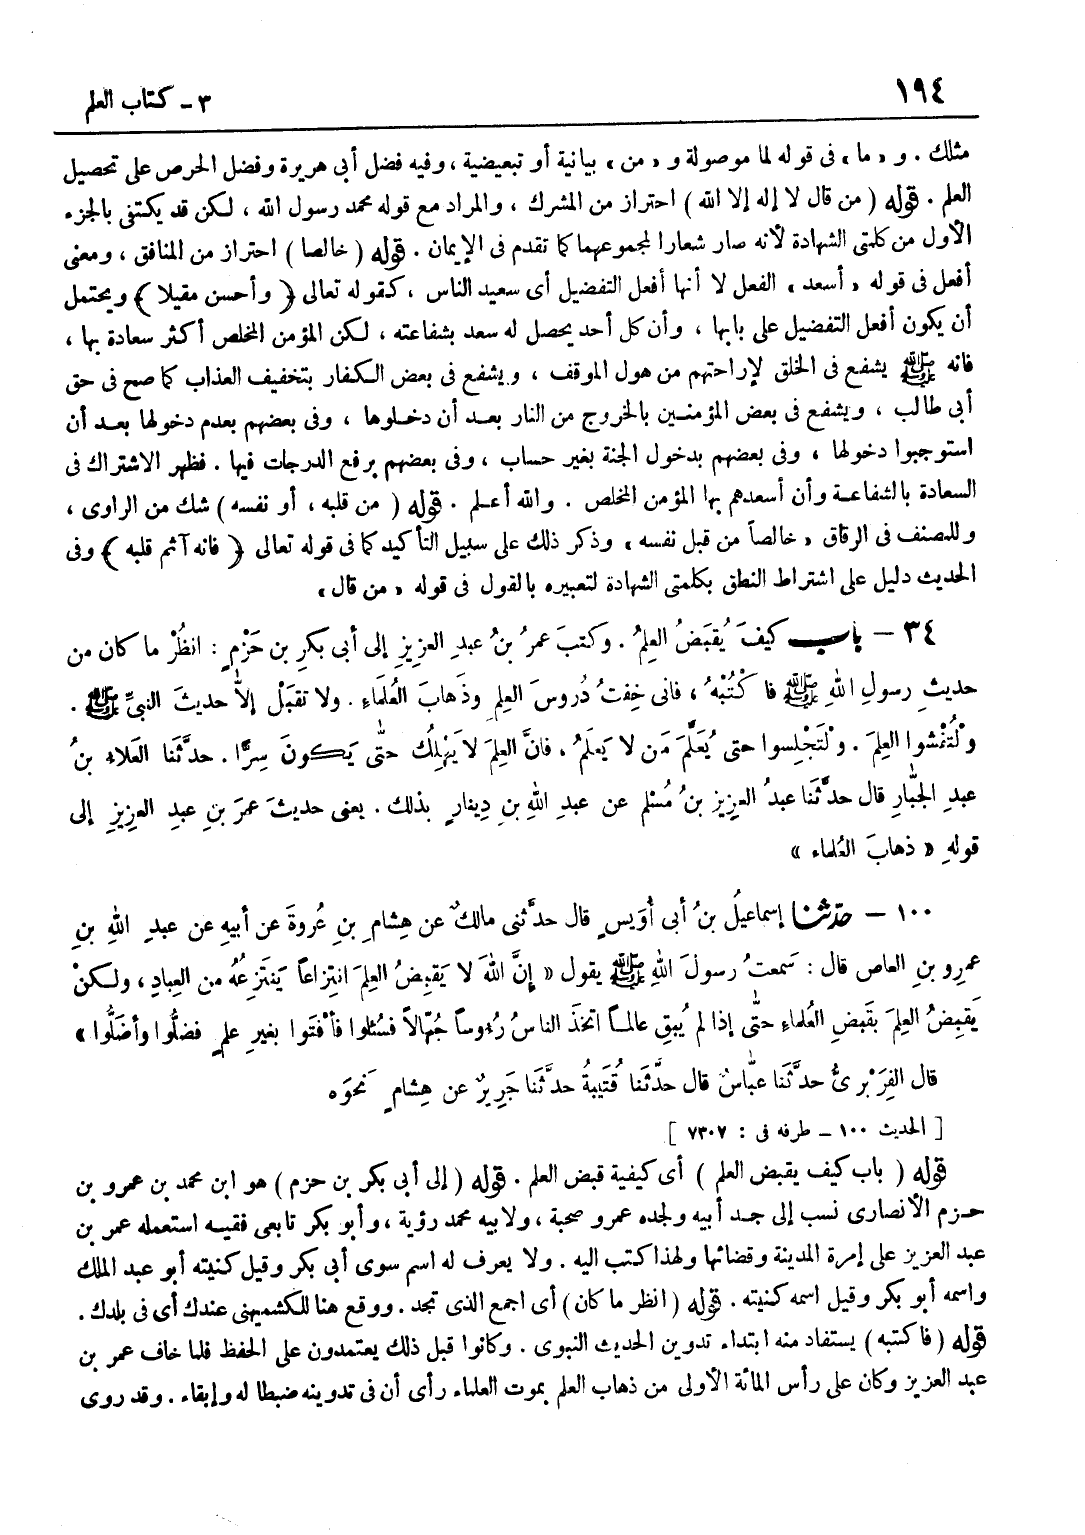 ١٩٤
٣ - كتاب العلم
مثلك . و « ما » فى قوله لما موصولة و « من » بيانية أو تبعيضية ، وفيه فضل أبى هريرة وفضل الحرص على تحصيل
العلم . قوله ( من قال لا إله إلا الله ) احتراز من المشرك ، والمراد مع قوله محمد رسول الله ، لكن قد يكتفى بالجزء
الأول من كلمتى الشهادة لأنه صار شعارا لمجموعهما كما تقدم فى الإيمان . قوله ( خالصا ) احتراز من المنافق ، ومعنى
أفعل فى قوله « أسعد » الفعل لا أنها أفعل التفضيل أى سعيد الناس ، كقوله تعالى ﴿ وأحسن مقيلا ﴾ ويحتمل
أن يكون أفعل التفضيل على بابها ، وأن كل أحد يحصل له سعد بشفاعته ، لكن المؤمن المخلص أكثر سعادة بها ،
فانه ﷺ يشفع فى الخلق لإراحتهم من هول الموقف ، ويشفع فى بعض الكفار بتخفيف العذاب كما صح فى حق
أبى طالب ، ويشفع فى بعض المؤمنين بالخروج من النار بعد أن دخلوها ، وفى بعضهم بعدم دخولها بعد أن
استوجبوا دخولها ، وفى بعضهم بدخول الجنة بغير حساب ، وفى بعضهم برفع الدرجات فيها . فظهر الاشتراك فى
السعادة بالشفاعة وأن أسعدهم بها المؤمن المخلص . والله أعلم . قوله ( من قلبه ، أو نفسه ) شك من الراوى ،
وللمصنف فى الرقاق « خالصاً من قبل نفسه » وذكر ذلك على سبيل التأكيد كما فى قوله تعالى ﴿ فانه آثم قلبه ﴾ وفى
الحديث دليل على اشتراط النطق بكلمتى الشهادة لتعبيره بالقول فى قوله « من قال »
٣٤ - باب كيفَ يُقبَضُ العِلمُ . وكتبَ عمرُ بنُ عبدِ العزيزِ إلى أبى بكرِ بنِ حَزْمٍ : انظُرْ ما كان من
حديثِ رسولِ اللهِ ﷺ فاكْتُبْهُ ، فانى خِفتُ دُروسَ العِلمِ وذَهابَ العُلَماءِ . ولا تقبَلْ إلاَّ حديثَ النبىِّ ﷺ .
وْلتُفْشوا العِلمَ . ولْتَجْلِسوا حتى يُعَلَّمَ مَن لا يَعلَمُ ، فانَّ العِلمَ لا يَهْلِكُ حتَّى يَكونَ سِرًّا . حدَّثَنا العَلاءُ بنُ
عبدِ الجبَّارِ قال حدَّثَنا عبدُ العزيزِ بنُ مُسْلمٍ عن عبدِ اللهِ بنِ دِينارٍ بذلك . يعنى حديثَ عمرَ بنِ عبدِ العزيزِ إلى
قولهِ « ذهابَ العُلماء »
١٠٠ - حدّثنا إسماعيلُ بنُ أبى أُوَيسٍ قال حدَّثنى مالكٌ عن هِشامِ بنِ عُروةَ عن أبيهِ عن عبدِ اللهِ بنِ
عمرِو بنِ العاص قال : سَمعتُ رسولَ اللهِ ﷺ يقول « إنَّ اللهَ لا يَقبِضُ العِلمَ انتِزاعاً يَنتَزِعُهُ من العِبادِ ، ولكنْ
يَقبِضُ العِلمَ بقَبضِ العُلماءِ حتَّى إذا لم يُبقِ عالماً اتخَذَ الناسُ رُءوساً جُهّالاً فسُئلوا فأفْتَوا بغيرِ علمٍ فضلُّوا وأضَلُّوا »
قال الفِرَبْرىُّ حدَّثَنا عبَّاسٌ قال حدَّثَنا قُتَيبةُ حدَّثَنا جَريرٌ عن هِشامٍ نحوَه
[ الحديث ١٠٠ - طرفه فى : ٧٣٠٧ ]
قوله ( باب كيف يقبض العلم ) أى كيفية قبض العلم . قوله ( إلى أبى بكر بن حزم ) هو ابن محمد بن عمرو بن
حزم الأنصارى نسب إلى جد أبيه ولجده عمرو صحبة ، ولابيه محمد رؤية ، وأبو بكر تابعى فقيه استعمله عمر بن
عبد العزيز على إمرة المدينة وقضائها ولهذا كتب اليه . ولا يعرف له اسم سوى أبى بكر وقيل كنيته أبو عبد الملك
واسمه أبو بكر وقيل اسمه كنيته . قوله ( انظر ما كان ) أى اجمع الذى تجد . ووقع هنا للكشميهنى عندك أى فى بلدك .
قوله ( فاكتبه ) يستفاد منه ابتداء تدوين الحديث النبوى . وكانوا قبل ذلك يعتمدون على الحفظ فلما خاف عمر بن
عبد العزيز وكان على رأس المائة الأولى من ذهاب العلم بموت العلماء رأى أن فى تدوينه ضبطا له وإبقاء . وقد روى